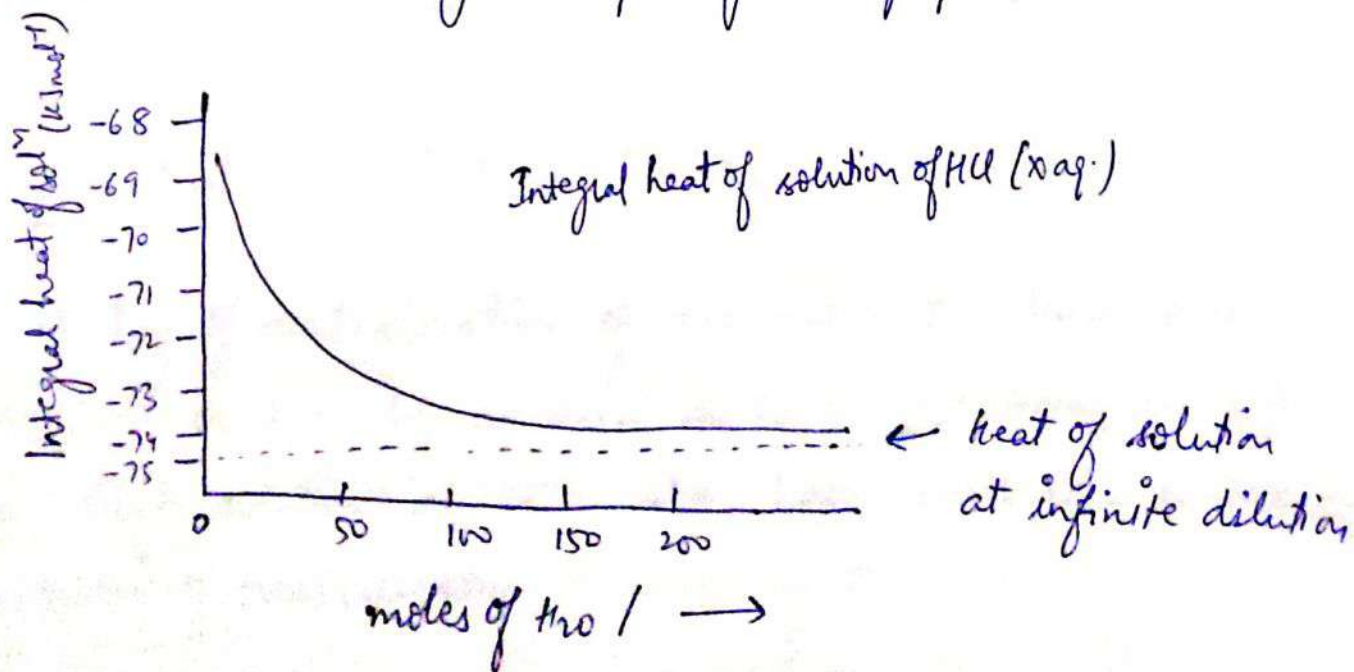 Integral heat of solⁿ (KJmol⁻¹)
-68
-69
-70
-71
-72
-73
-74
-75
Integral heat of solution of HCl (x aq.)
← heat of solution
at infinite dilution
0 50 100 150 200
moles of H₂O / →